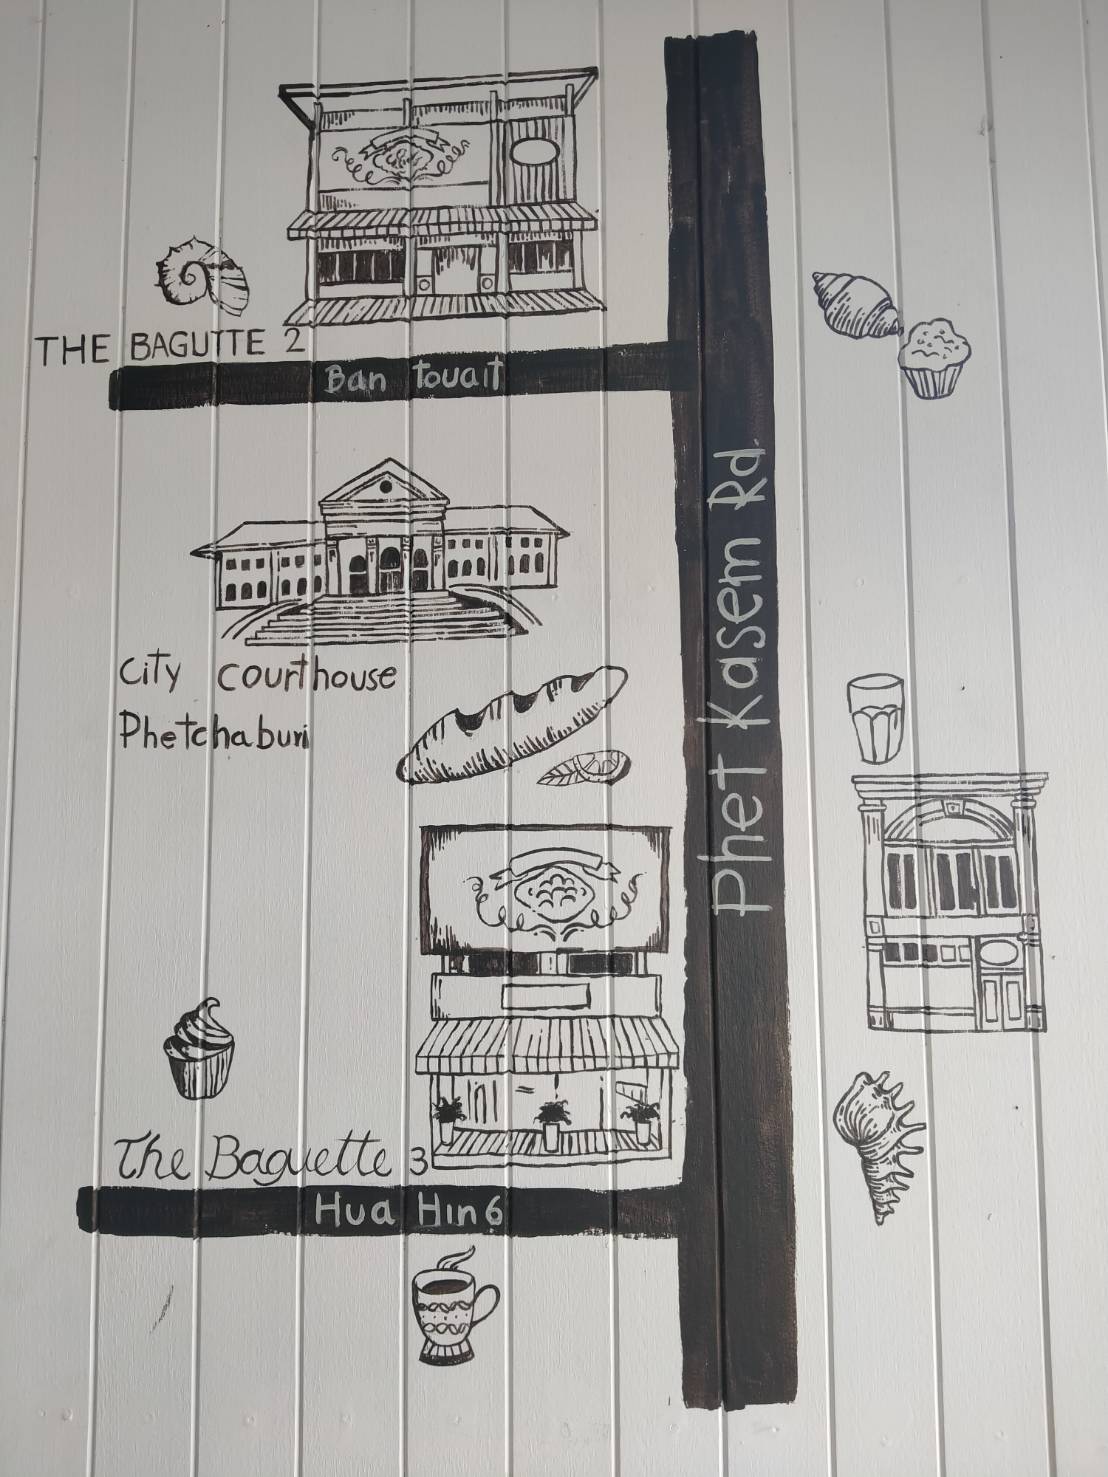 THE BAGUTTE 2
Ban touait
City courthouse
Phetchaburi
Phet Kasem Rd.
The Baguette 3
Hua Hin 6